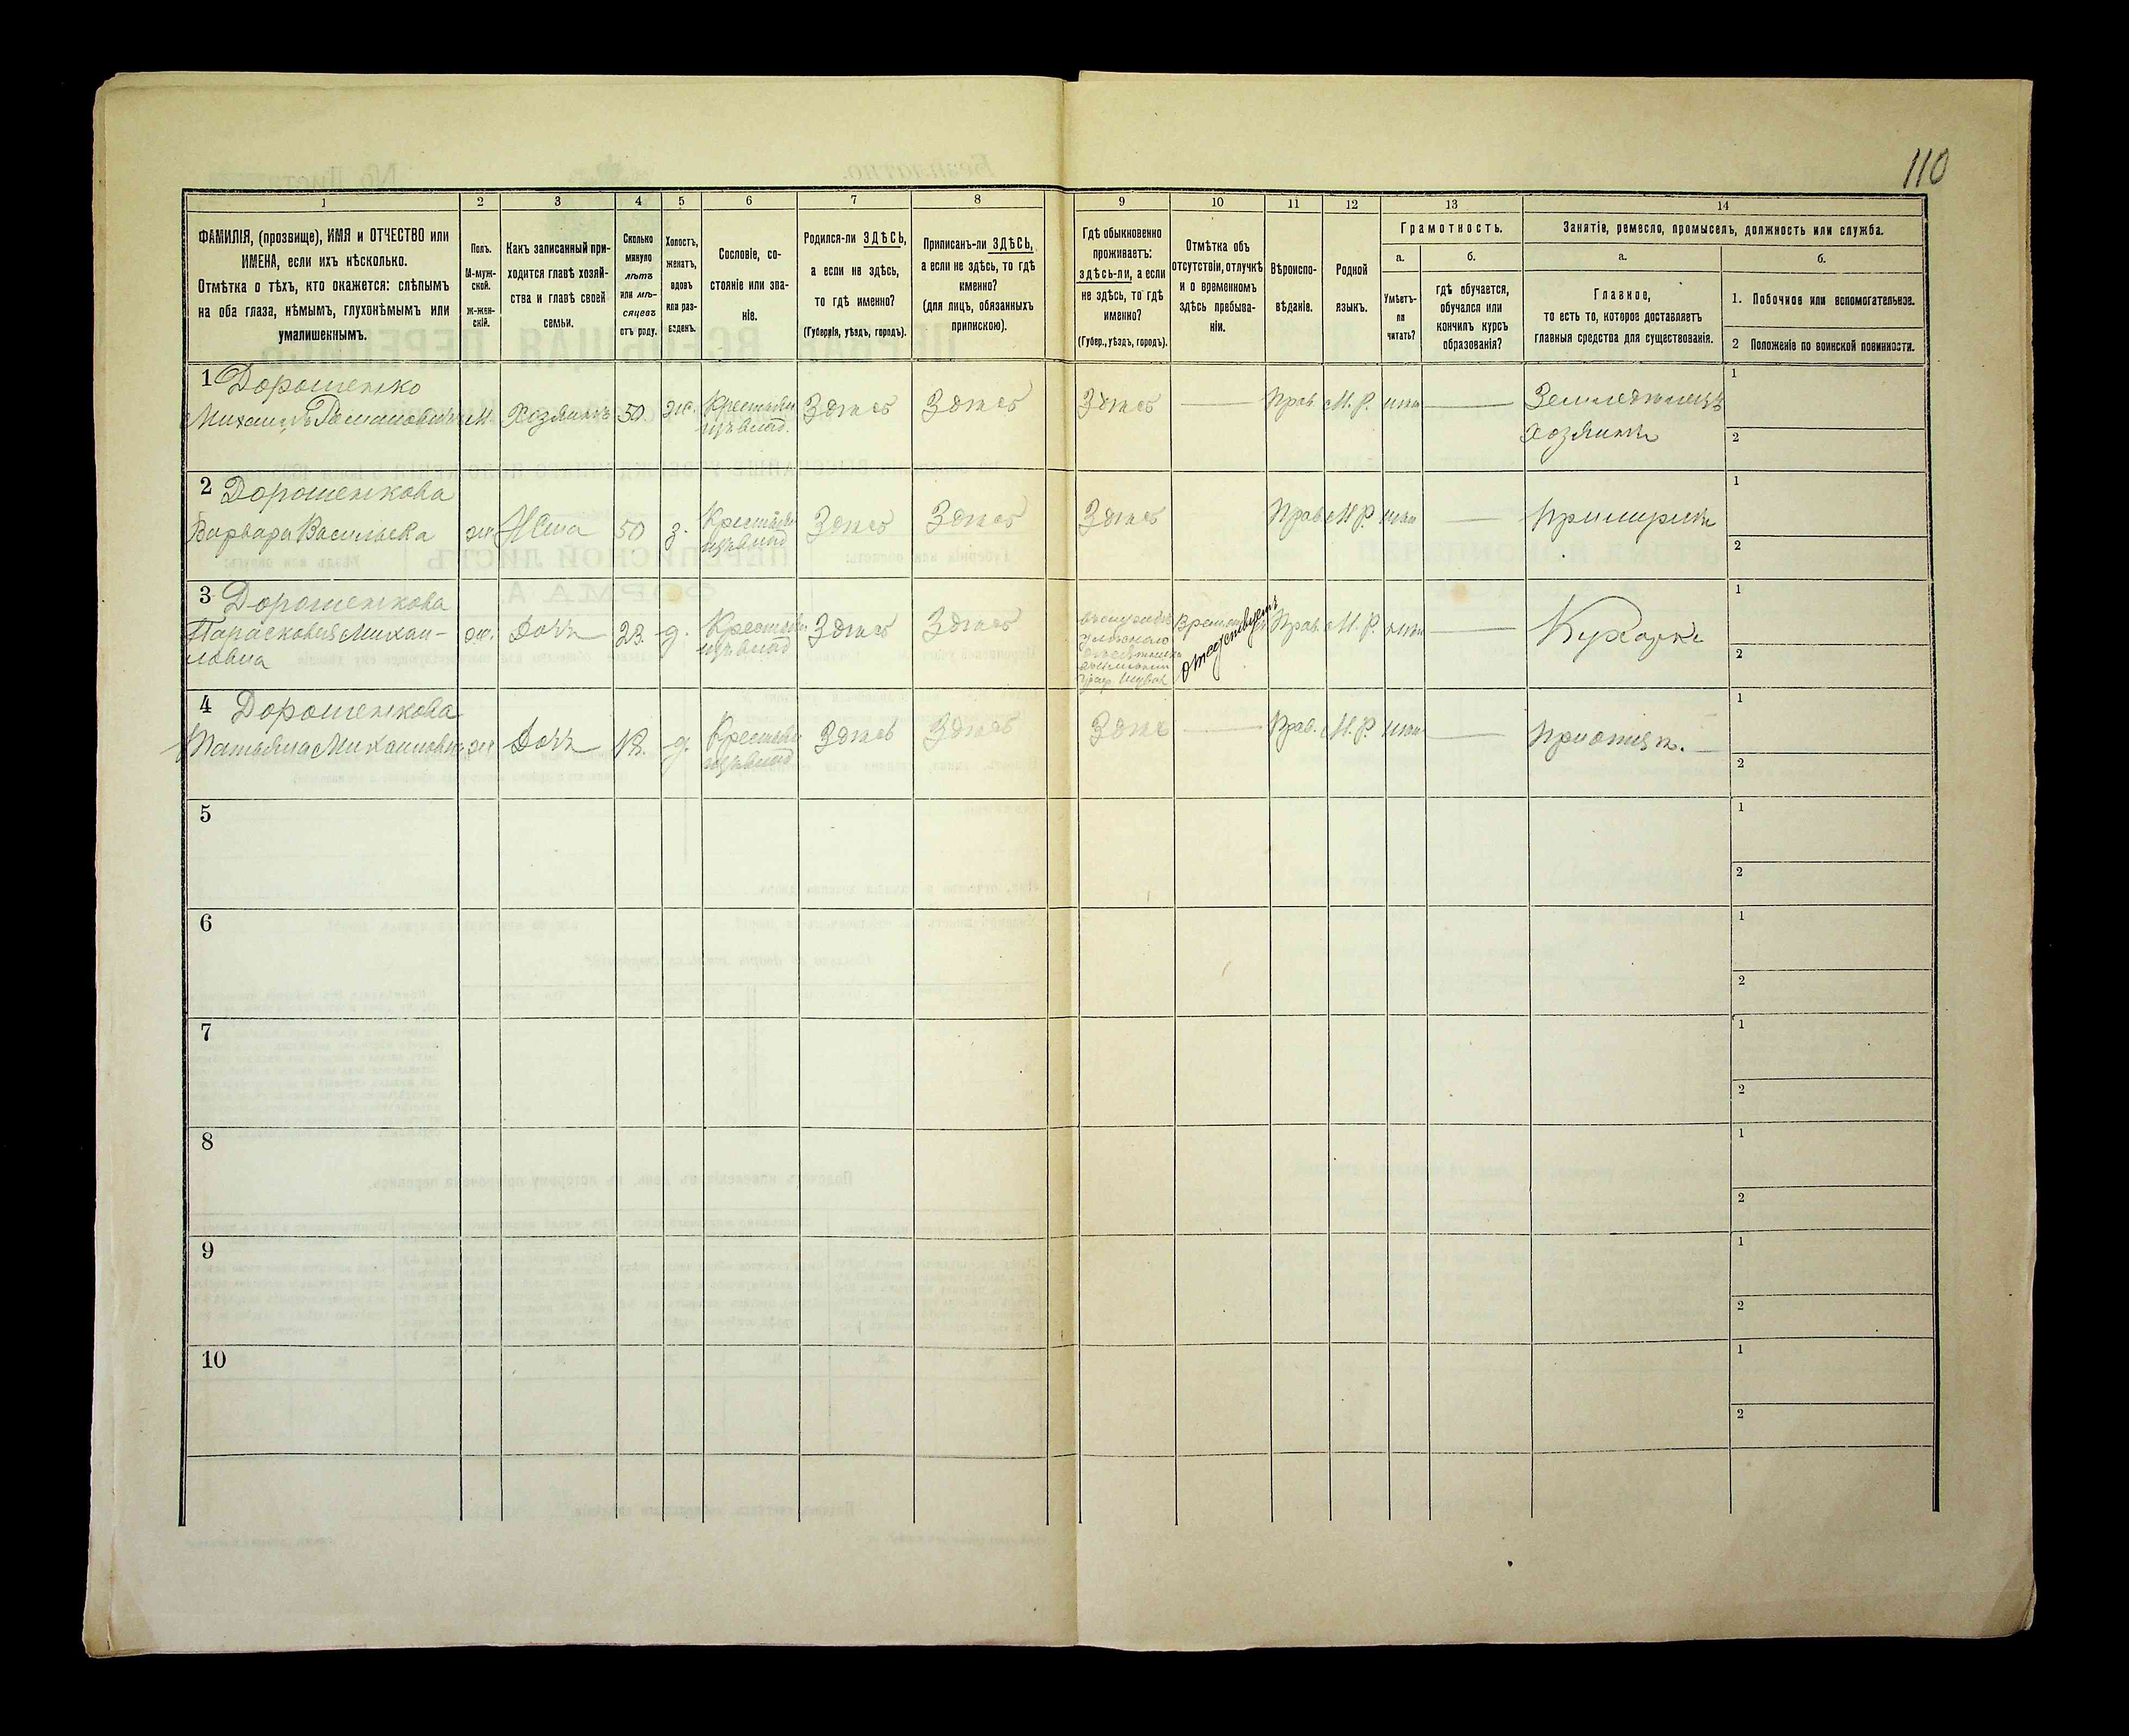 110
1
2
3
4
5
6
7
8
9
10
11
12
13
14
ФАМИЛІЯ, (прозвище), ИМЯ и ОТЧЕСТВО или
ИМЕНА, если ихъ нѣсколько.
Отмѣтка о тѣхъ, кто окажется: слѣпымъ
на оба глаза, нѣмымъ, глухонѣмымъ или
умалишеннымъ.
Полъ.
М-муж-
ской.
ж-жен-
скій.
Какъ записанный при-
ходится главѣ хозяй-
ства и главѣ своей
семьи.
Сколько
минуло
лѣтъ
или мѣ-
сяцевъ
отъ роду.
Холостъ,
женатъ,
вдовъ
или раз-
веденъ.
Сословіе, со-
стояніе или зва-
ніе.
Родился-ли ЗДѢСЬ,
а если не здѣсь,
то гдѣ именно?
(Губернія, уѣздъ, городъ).
Приписанъ-ли ЗДѢСЬ,
а если не здѣсь, то гдѣ
именно?
(для лицъ, обязанныхъ
припискою).
Гдѣ обыкновенно
проживаетъ:
здѣсь-ли, а если
не здѣсь, то гдѣ
именно?
(Губер., уѣздъ, городъ).
Отмѣтка объ
отсутствіи, отлучкѣ
и о временномъ
здѣсь пребыва-
ніи.
Вѣроиспо-
вѣданіе.
Родной
языкъ.
Грамотность.
а.
Умѣетъ-
ли
читать?
б.
гдѣ обучается,
обучался или
кончилъ курсъ
образованія?
Занятіе, ремесло, промыселъ, должность или служба.
а.
Главное,
то есть то, которое доставляетъ
главныя средства для существованія.
б.
1. Побочное или вспомогательное.
2 Положеніе по воинской повинности.
1 Дорошенко
Михаилъ Романовичъ М. Хозяинъ 50 ж. Крестьян Здѣсь Здѣсь Здѣсь — Прав М.Р. нѣт — Земледѣлецъ
изъ влад. хозяинъ
1
2
2 Дорошенкова
Варвара Васильева ж Жена 50 з. Крестьян Здѣсь Здѣсь Здѣсь Прав М.Р. нѣт — при мужѣ
изъ влад
1
2
3 Дорошенкова
Парасковья Михаи- ж. Дочь 22 д. Крестьян Здѣсь Здѣсь Временно Прав. М.Р. нѣт — Кухарка
ловна изъ влад отсутствуетъ
1
2
4 Дорошенкова
Татьяна Михаиловна ж Дочь 12. д. Крестьян Здѣсь Здѣсь Здѣсь — Прав. М.Р. нѣт — при отцѣ.
изъ влад
1
2
5
1
2
6
1
2
7
1
2
8
1
2
9
1
2
10
1
2